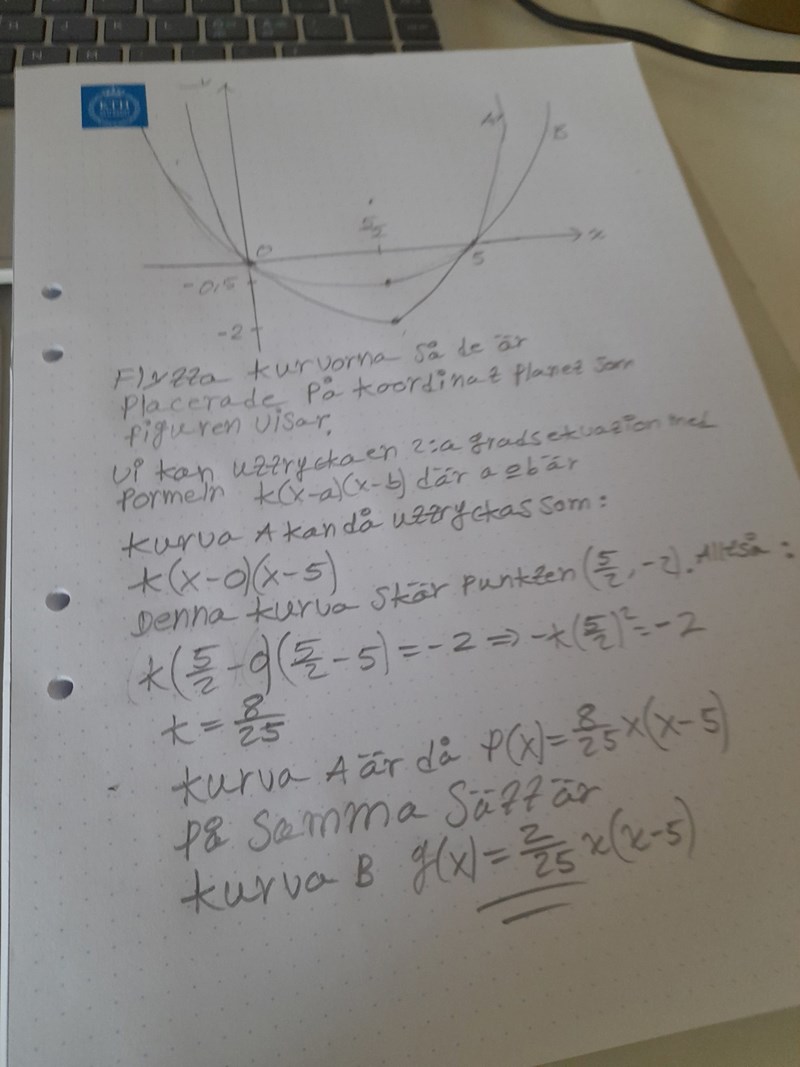 KTH
y
A
B
0
5/2
5
x
-0,5
-2
Flytta kurvorna så de är
placerade på koordinat planet som
figuren visar.
Vi kan uttrycka en 2:a gradsekvation med
formeln k(x-a)(x-b) där a och b är
kurva A kan då uttryckas som:
k(x-0)(x-5)
Denna kurva skär punkten (5/2, -2). Alltså:
k(5/2-0)(5/2-5)=-2 ⇒ -k(5/2)²=-2
k = 8/25
kurva A är då f(x)=8/25 x(x-5)
På samma sätt är
kurva B g(x)=2/25 x(x-5)